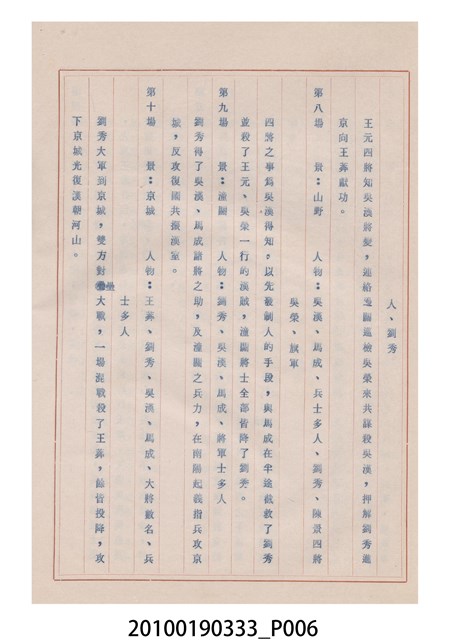 人、劉秀
王元四將知吳漢將變,連絡潼關巡檢吳榮來共謀殺吳漢,押解劉秀進
京向王莽獻功。
第八場　景:山野　人物:吳漢、馬成、兵士多人、劉秀、陳景四將
吳榮、旗軍
四將之事爲吳漢得知,以先發制人的手段,與馬成在半途截救了劉秀
並殺了王元、吳榮一行的漢賊,潼關將士全部皆降了劉秀。
第九場　景:潼關　人物:劉秀、吳漢、馬成、將軍士多人
劉秀得了吳漢、馬成諸將之助,及潼關之兵力,在南陽起義指兵攻京
城,反攻復國共振漢室。
第十場　景:京城　人物:王莽、劉秀、吳漢、馬成、大將數名、兵
士多人
劉秀大軍到京城,雙方對壘大戰,一場混戰殺了王莽,餘皆投降,攻
下京城光復漢朝河山。
20100190333_P006